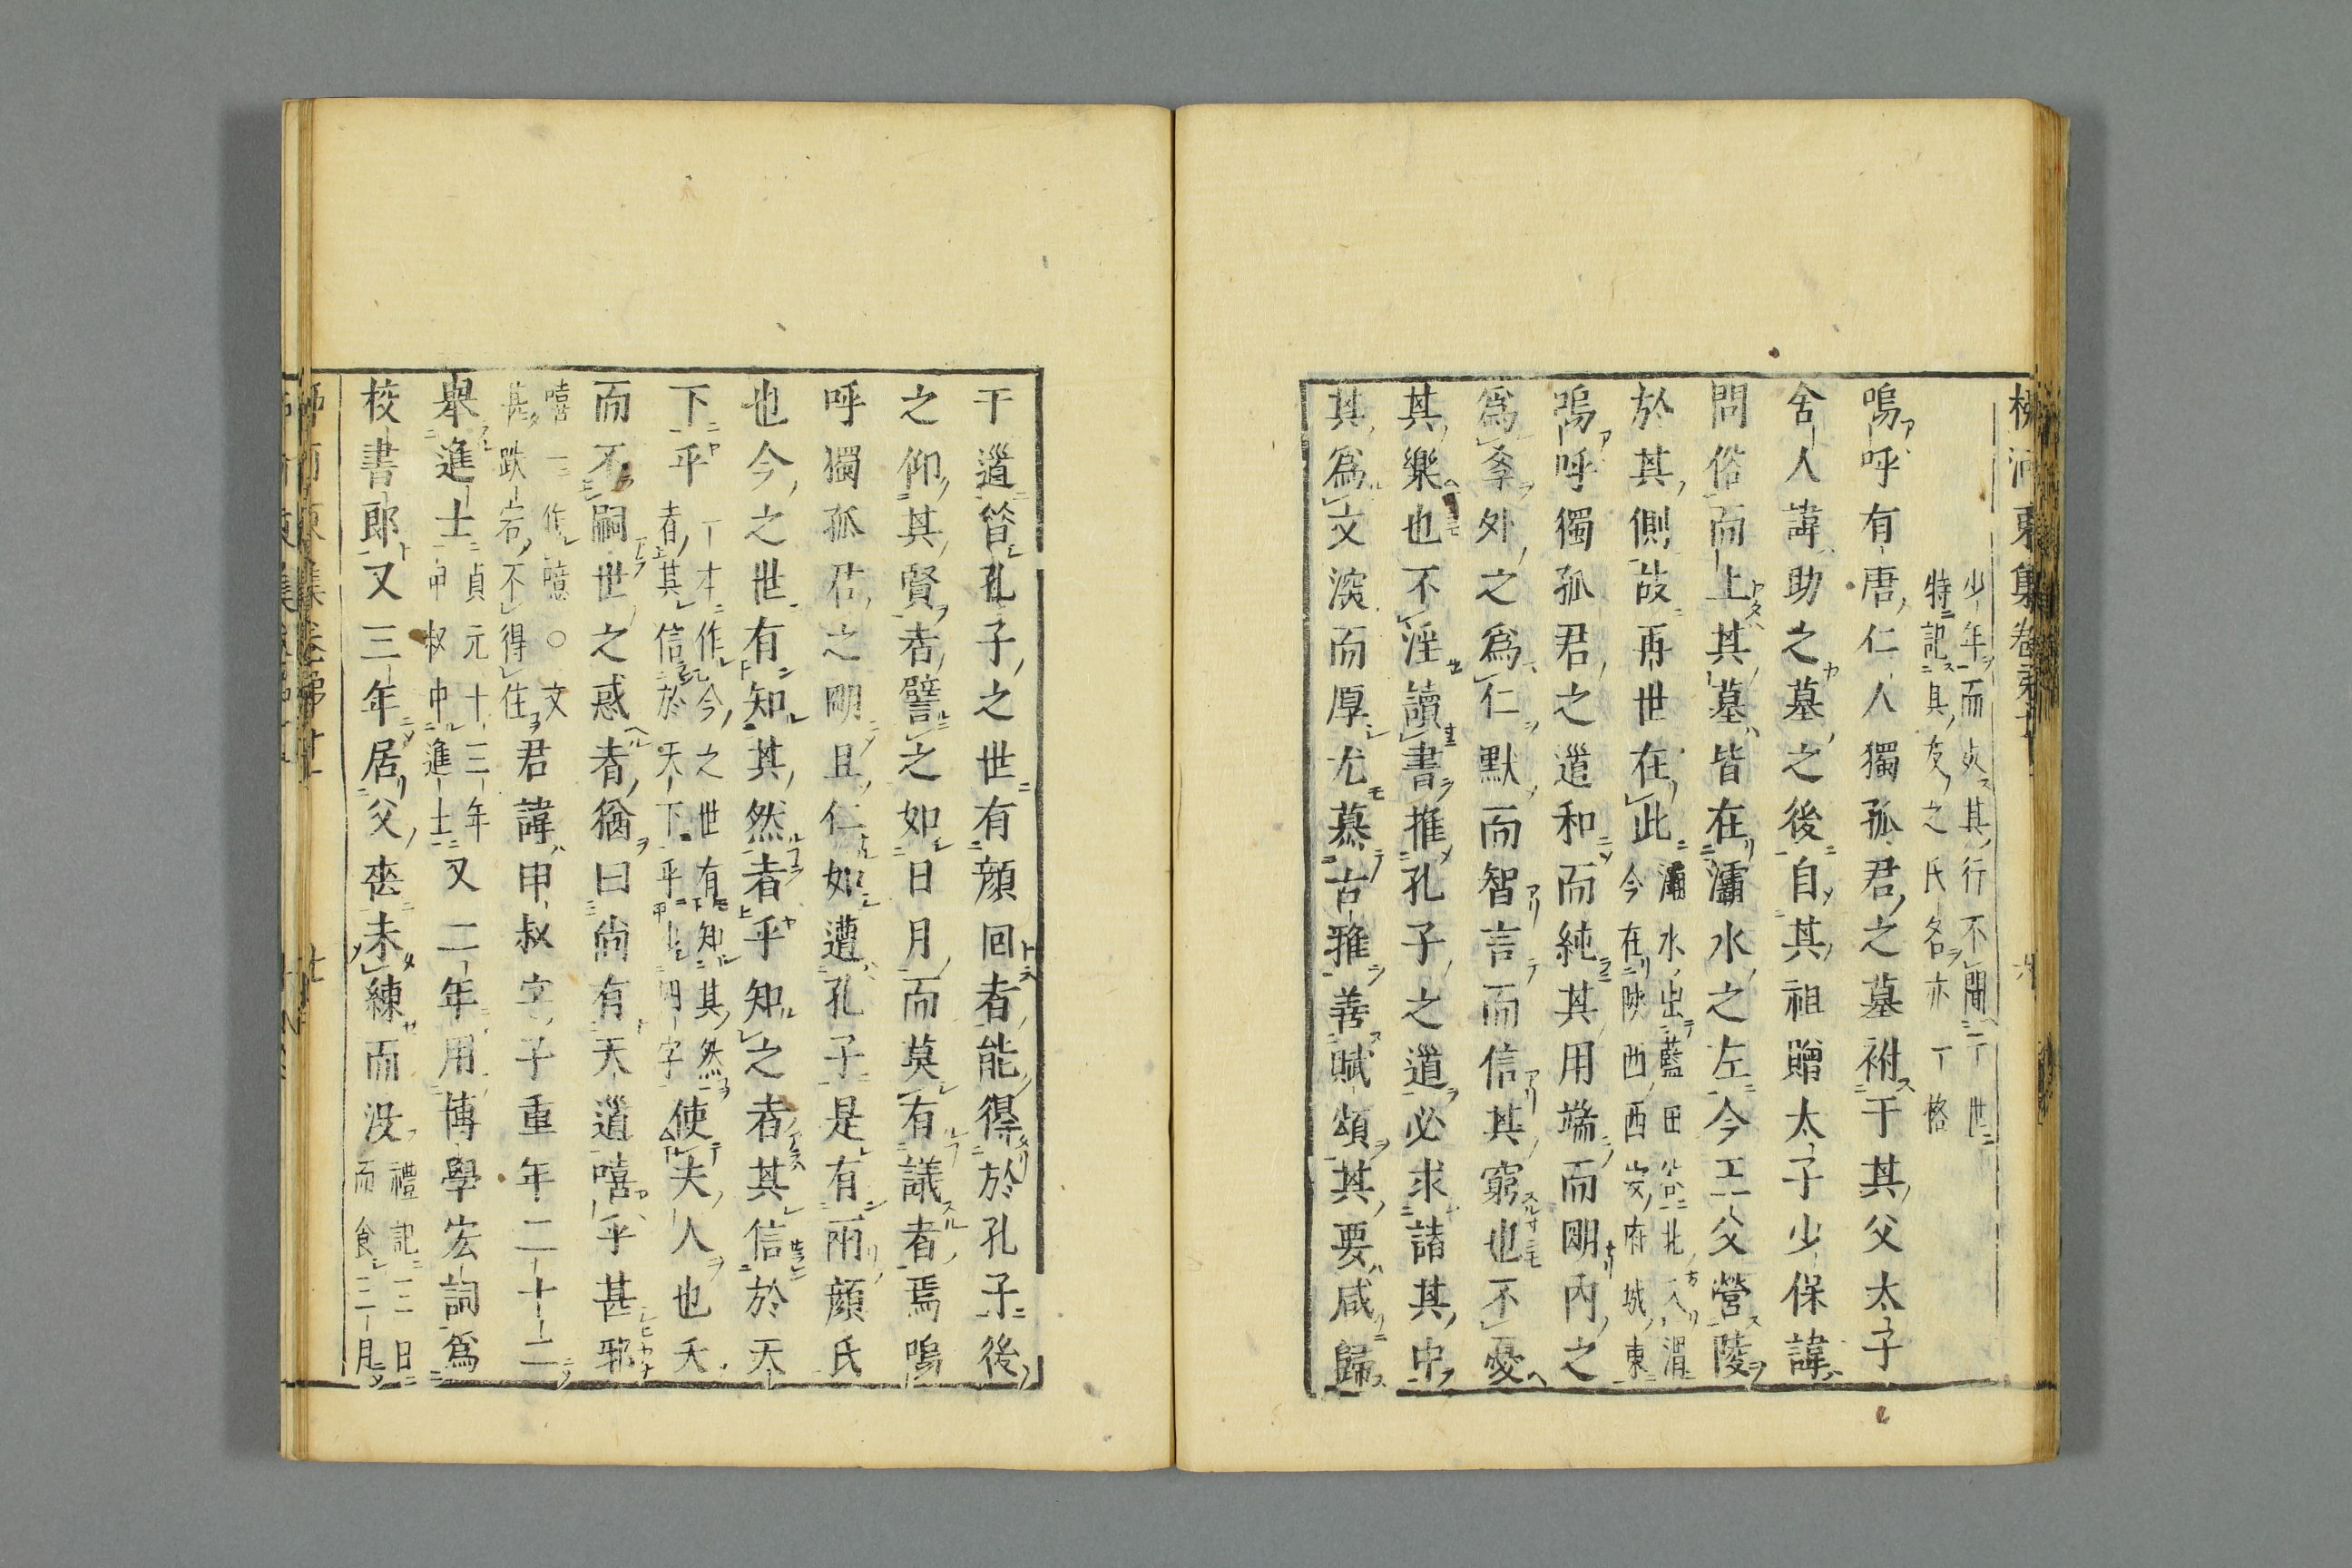 少年而夭其行不聞于世
特記其友之氏名亦一格
嗚呼有唐仁人獨孤君之墓祔于其父太子
舍人諱助之墓之後自其祖贈太子少保諱
問俗而上其墓皆在灞水之左今王父營陵
於其側故再世在此灞水出藍田谷北入渭
今在陝西西安府城東
嗚呼獨孤君之道和而純其用端而明內之
爲孝外之爲仁默而智言而信其窮也不憂
其樂也不淫讀書推孔子之道必求諸其中
其爲文深而厚尤慕古雅善賦頌其要咸歸
于道昔孔子之世有顔回者能得於孔子後
之仰其賢者譬之如日月而莫有議者焉嗚
呼獨孤君之明且仁如遭孔子是有兩顔氏
也今之世有知其然者乎知之者其信於天
下乎一本作今之世有知其然
者其信於天下乎止四字
使夫人也夭
而不嗣世之惑者猶曰尚有天道嘻乎甚邪
嘻一作噫○文
甚跌宕不得住
君諱申叔字子重年二十二
舉進士貞元十三年
申叔中進士
又二年用博學宏詞爲
校書郎又三年居父喪未練而沒禮記二日
而食三月